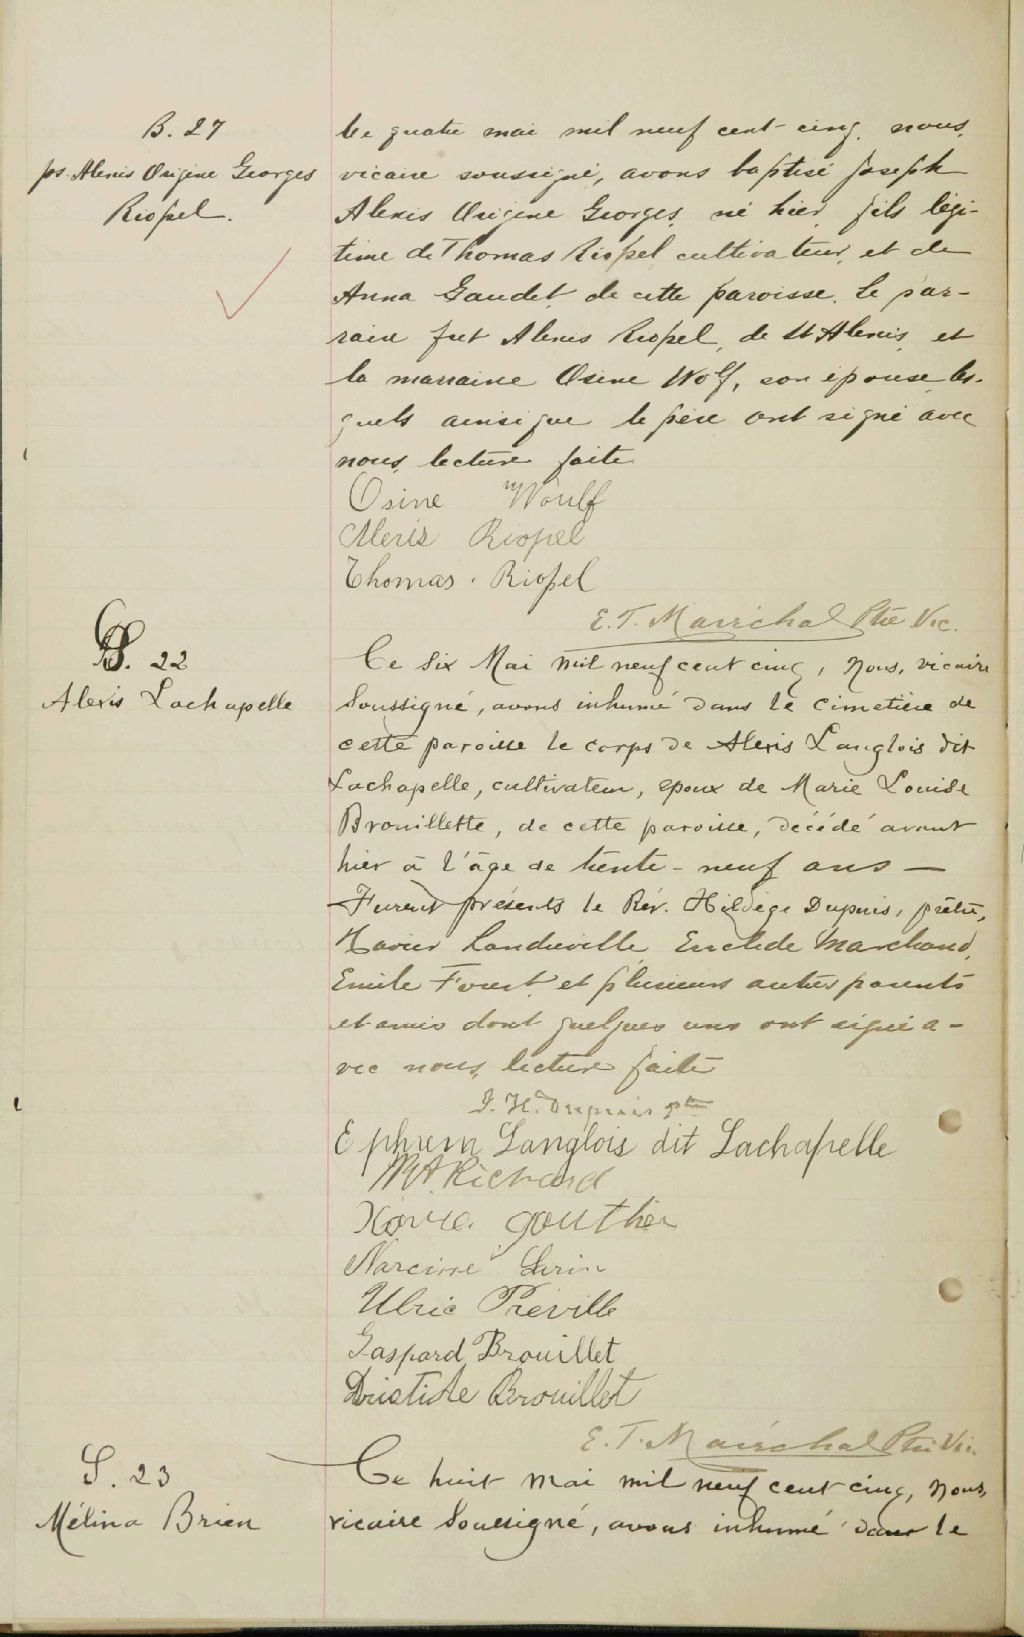 B. 27
Jos. Alexis Origène Georges
Riopel.
Le quatre mai mil neuf cent-cinq, nous,
vicaire soussigné, avons baptisé Joseph
Alexis Origène Georges, né hier, fils légi-
time de Thomas Riopel, cultivateur, et de
Anna Gaudet, de cette paroisse. Le par-
rain fut Alexis Riopel, de St Alexis, et
la marraine Osine Wolf, son épouse les-
quels ainsi que le père ont signé avec
nous, lecture faite
Osine Woulf
Alexis Riopel
Thomas Riopel
E. T. Maréchal Ptre Vic.
S. 22
Alexis Lachapelle
Ce six Mai mil neuf cent cinq, Nous, vicaire
Soussigné, avons inhumé dans le cimetière de
cette paroisse le corps de Alexis Langlois dit
Lachapelle, cultivateur, époux de Marie Louise
Brouillette, de cette paroisse, décédé avant
hier à l'âge de trente-neuf ans —
Furent présents le Rév. Hildège Dupuis, prêtre,
Xavier Landreville, Euclide Marchand,
Emile Forest, et plusieurs autres parents
et amis dont quelques uns ont signé a-
vec nous, lecture faite
J. H. Dupuis ptre
Ephrem Langlois dit Lachapelle
Richard
Xavier gouthier
Narcisse
Ulric Préville
Gaspard Brouillet
Aristide Brouillet
E. T. Maréchal Ptre Vic.
S. 23
Mélina Brien
Ce huit Mai mil neuf cent cinq, Nous,
vicaire Soussigné, avons inhumé dans le